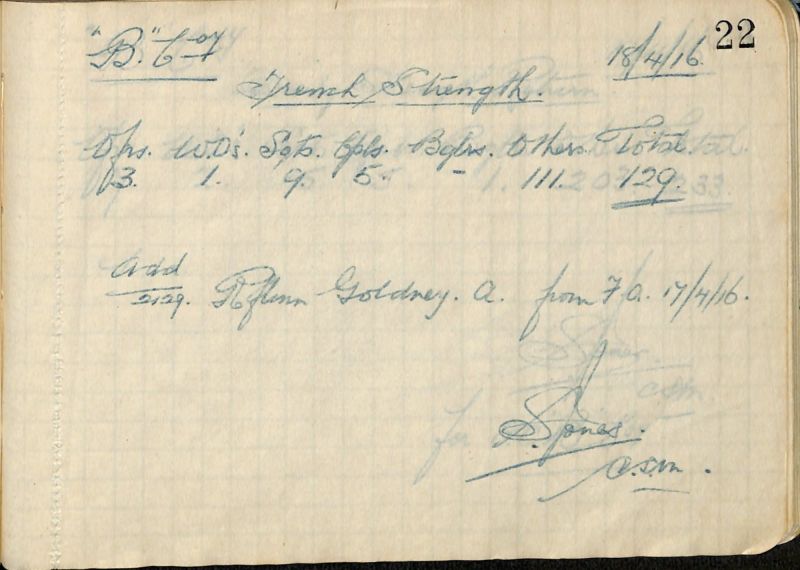 22
"B." Coy 18/4/16
Trench Strength.
Ofrs. W.O's. Sgts. Cpls. Bglrs. Others. Total.
3. 1. 9. 5. - 111. 129.
Add
2129. Rflmn Goldney. A. from F/A. 17/4/16.
S Jones.
C.S.M.